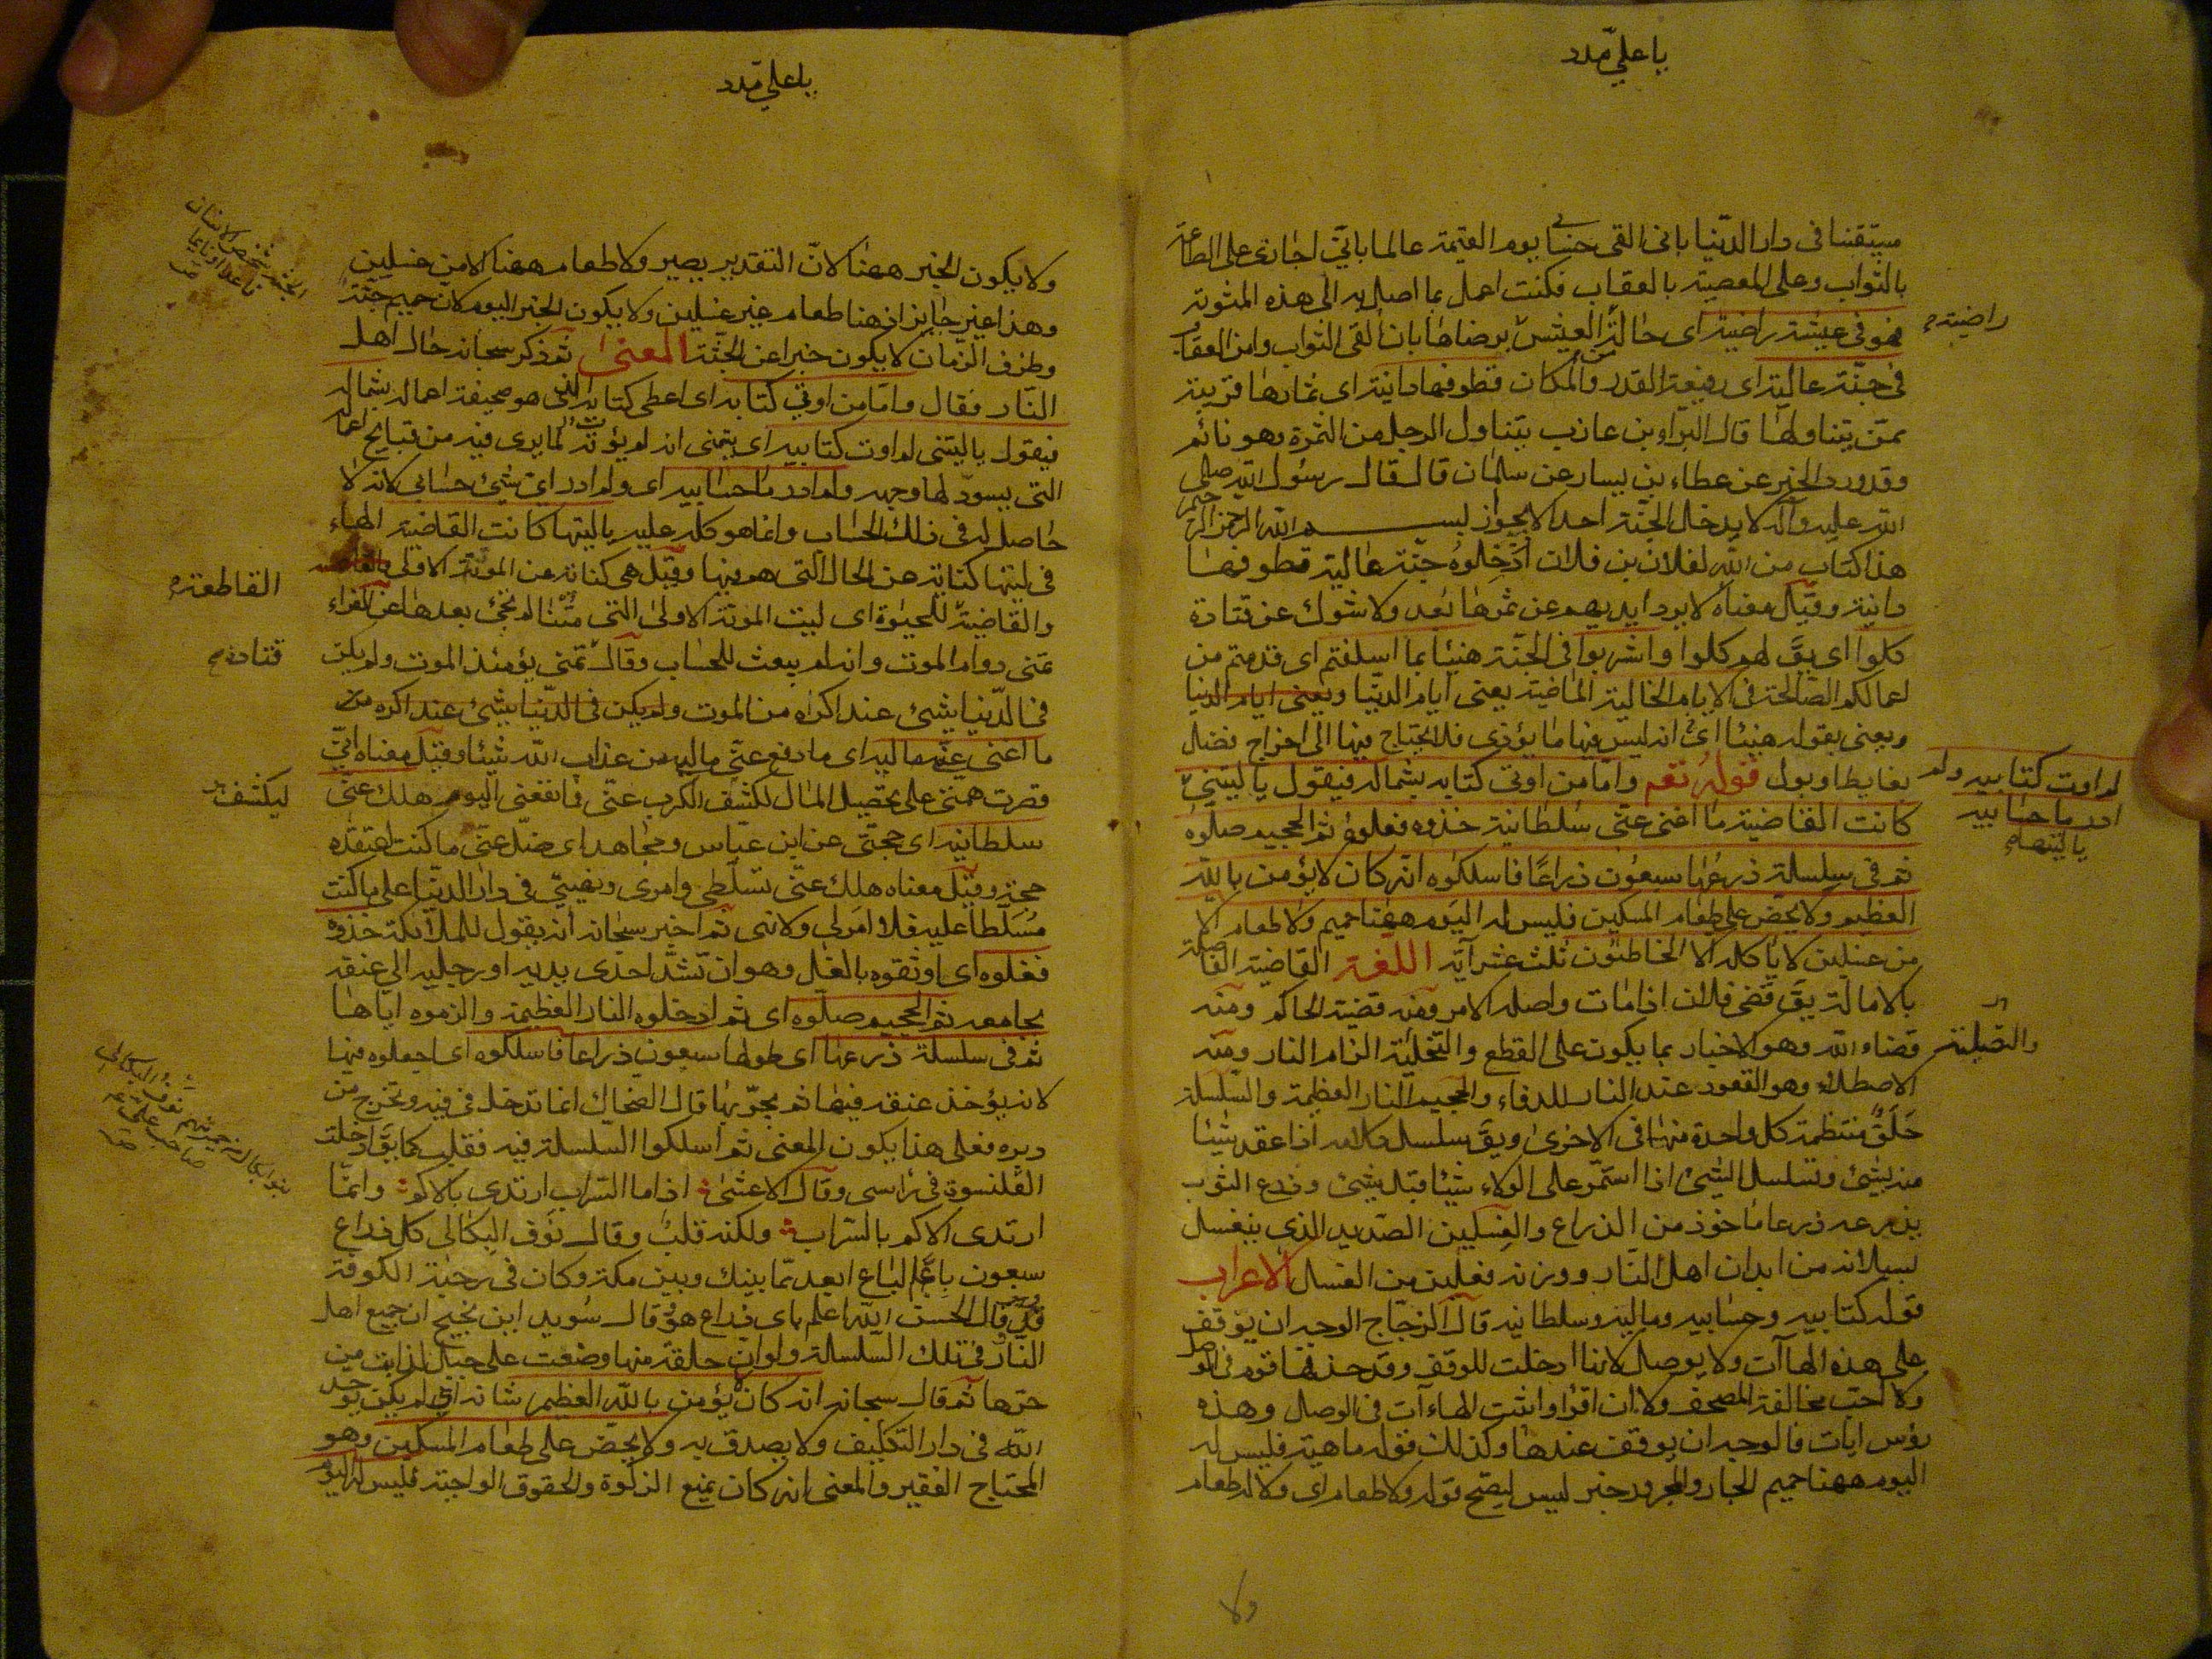 يا علي مدد
مستيقنا فى دار الدّنيا بانى القى حسابي يوم القيمة عالما بانّي اجازى على الطاعة
بالثواب وعلى المعصية بالعقاب فكنت اعمل بما اصل به الى هذه المثوبة
فهو فى عيشة راضية اى حالة من العيش يرضاها بان القى الثواب وامن العقاب
راضية
فى جنّة عالية اى رفيعة القدر والمكان قطوفها دانية اى ثمارها قريبة
ممّن يتناولها قال البراء بن عازب يتناول الرجل من الثمرة وهو نائم
وقد ورد الخبر عن عطاء بن يسار عن سلمان قال قال رسول الله صلى
الله عليه وآله لا يدخل الجنّة احد الا بجواز بسم الله الرحمن الرحيم
هذا كتاب من الله لفلان بن فلان ادخلوه جنّة عالية قطوفها
دانية وقيل معناه لا يرد ايديهم عن ثمرها بُعد ولا شوك عن قتادة
كلوا اى يقَ لهم كلوا واشربوا فى الجنّة هنيئا بما اسلفتم اى قدمتم من
اعمالكم الصّالحة فى الايام الخالية الماضية يعنى ايام الدنيا ويعنى ايام الدنيا
ويعنى بقوله هنيئا اى انه ليس فيها ما يؤذى فلا يحتاج فيها الى اخراج فضل
بغايط او بول قوله تعم واما من اوتى كتابه بشماله فيقول يا ليتنى
لم اوت كتابيه ولم
ادر ما حسابيه
يا ليتها
كانت القاضية ما اغنى عنّى سلطانية خذوه فغلّوه ثم الجحيم صلّوه
ثم فى سلسلة ذرعها سبعون ذراعًا فاسلكوه انّه كان لا يؤمن بالله
العظيم ولا يحضّ على طعام المسكين فليس له اليوم ههنا حميم ولا طعام الا
من غسلين لا ياكله الا الخاطئون ثلث عشر آية اللّغة القاضية الفاصلة
بالاماتة يقَ قضى فلان اذا مات واصله الامر ومنه قضية الحاكم ومنه
قضاء الله وهو الاخبار بما يكون على القطع والتّصلية الزام النار ومنه
والتّصلية
الاصطلاء وهو القعود عند النار للدفاء والجحيم النار العظيمة والسّلسلة
حَلَقٌ منتظمة كل واحدة منها فى الاخرى ويقَ سلسل كلامه اذا عقد شيئا
منه بشئ وتسلسل الشئ اذا استمرّ على الولاء شيئا قبل شئ وذرع الثوب
يذرعه ذرعا ماخوذ من الذراع والغسلين الصّديد الذى ينغسل
بسيلانه من ابدان اهل النّار ووزنه فعلين من الغسل الاعراب
قوله كتابيه وحسابيه وماليه وسلطانيه قال الزجّاج الوجه ان يوقف
على هذه الهاآت ولا يوصل لانها ادخلت للوقف وقد حذفها قوم فى الوصل
ولا احبّ مخالفة المصحف ولا ان اقرا واثبت الهاءآت فى الوصل وهذه
رؤس ايات فالوجه ان يوقف عندها وكذلك قوله ماهية فليس له
اليوم ههنا حميم الجار والمجرور خبر ليس ليصحّ قوله ولا طعام اى ولا له طعام
ولا
يا علي مدد
ولا يكون الخبر ههنا لانّ التقدير يصير ولا طعام ههنا الا من غسلين
وهذا غير جايز اذ هنا طعام غير غسلين ولا يكون الخبر اليوم لانّ حميم جثّة
وظرف الزّمان لا يكون خبرا عن الجثّة المعنى ثم ذكر سبحانه حال اهل
النّار فقال وامّا من اوتى كتابه اى اعطى كتابه الذى هو صحيفة اعماله بشماله
فيقول يا ليتنى لم اوت كتابيه اى يتمنى انه لم يؤته لما يرى فيه من قبايح اعماله
التى يسودّ لها وجهه ولم ادر ما حسابيه اى ولم ادر اى شئ حسابى لانه لا
حاصل له فى ذلك الحساب وانما هو كله عليه يا ليتها كانت القاضية الهاء
فى ليتها كناية عن الحال الّتى هم فيها وقيل هى كناية عن الموتة الاولى
القاطعة
والقاضية للحيوة اى ليت الموتة الاولى التى متنا لم نحى بعدها عن الفراء
تمنى دوام الموت وانه لم يبعث للحساب وقال تمنى يؤمئذ الموت ولم يكن
قتادة
فى الدّنيا شئ عنده اكره من الموت ولم يكن فى الدّنيا شئ عنده اكره من
ما اغنى عنّى ماليه اى ما دفع عنّى ماليه من عذاب الله شيئا وقيل معناه انّى
قصرت همّتى على تحصيل المال لكشف الكرب عنّى فما نفعنى اليوم هلك عنّى
ليكشف
سلطانيه اى حجّتى عن ابن عبّاس ومجاهد اى ضلّ عنّى ما كنت اعتقده
حجة وقيل معناه هلك عنّى تسلّطى وامرى ونهيّى فى دار الدنيا على ما كنت
مُسلّطا عليه فلا امر لى ولا نهى ثم اخبر سبحانه انّه يقول للملائكة خذوه
فغلوه اى اوثقوه بالغلّ وهو ان تشدّ احدى يديه او رجليه الى عنقه
بجامعه ثم الجحيم صلّوه اى ثم ادخلوه النار العظيمة والزموه اياها
ثم فى سلسلة ذرعها اى طولها سبعون ذراعا فاسلكوه اى اجعلوه فيها
لانه يؤخذ عنقه فيها ثم يجرّ بها قال الضحاك انما تدخل فى فيه وتخرج من
دبره فعلى هذا يكون المعنى ثم اسلكوا السّلسلة فيه فقلب كما يقَ ادخلت
القلنسوة فى راسى وقال الاعشى اذا ما السّراب ارتدى بالاكم وانّما
ارتدى الاكم بالسّراب ولكنه قلب وقال نَوف البكالى كل ذراع
سبعون باعًا الباع ابعد ممّا بينك وبين مكة وكان فى رحبة الكوفة
قال الحسن الله اعلم باى ذراع هو وقال سُويد ابن نجيح ان جميع اهل
النّار فى تلك السّلسلة ولو ان حلقة منها وضعت على جبل لذاب من
حرّها ثم قال سبحانه انه كان لا يؤمن بالله العظيم شانه اى لم يكن يوحّد
الله فى دار التكليف ولا يصدق به ولا يحضّ على طعام المسكين وهو
المحتاج الفقير والمعنى انه كان يمنع الزكوة والحقوق الواجبة فليس له اليوم